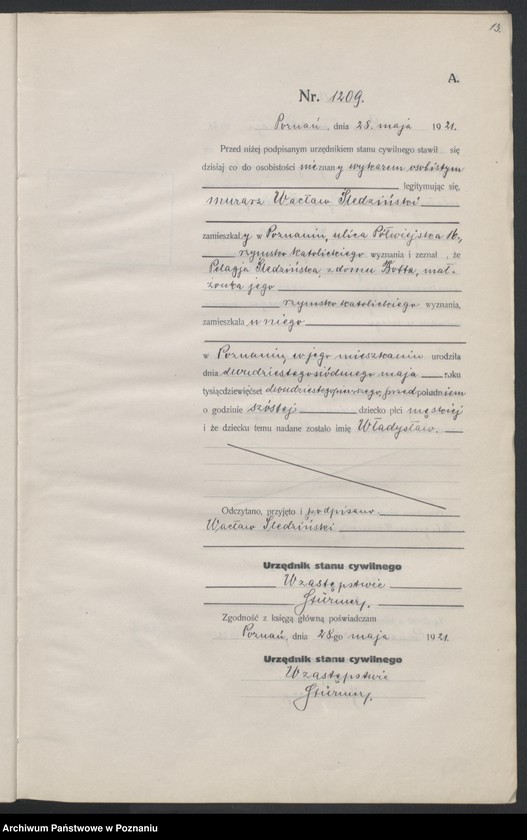 13.
A.
Nr. 1209.
Poznań, dnia 28. maja 1921.
Przed niżej podpisanym urzędnikiem stanu cywilnego stawił się
dzisiaj co do osobistości nieznany wykazem osobistym
legitymując się,
murarz Wacław Śledziński
zamieszkały w Poznaniu, ulica Półwiejska 16.,
rzymsko katolickiego wyznania i zeznał, że
Pelagja Śledzińska z domu Botta, mał-
żonka jego
rzymsko katolickiego wyznania,
zamieszkała u niego
w Poznaniu, w jego mieszkaniu urodziła
dnia dwudziestegosiódmego maja roku
tysiącdziewięćset dwudziestegopierwszego, przedpołudniem
o godzinie szóstej dziecko płci męskiej
i że dziecku temu nadane zostało imię Władysław.
Odczytano, przyjęto i podpisano.
Wacław Śledziński
Urzędnik stanu cywilnego
W zastępstwie
Zgodność z księgą główną poświadczam
Poznań, dnia 28go maja 1921.
Urzędnik stanu cywilnego
W zastępstwie
Archiwum Państwowe w Poznaniu